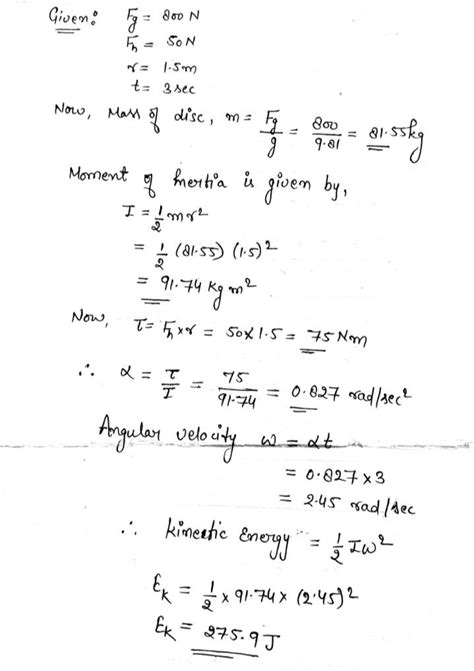 Given: Fg = 800 N
Fh = 50N
r = 1.5m
t = 3 sec
Now, Mass of disc, m = Fg/g = 800/9.81 = 81.55kg
Moment of Inertia is given by,
I = 1/2 mr²
= 1/2 (81.55) (1.5)²
= 91.74 kg m²
Now, τ = Fh × r = 50 × 1.5 = 75 Nm
∴ α = τ/I = 75/91.74 = 0.827 rad/sec²
Angular velocity ω = αt
= 0.827 × 3
= 2.45 rad/sec
∴ Kinectic Energy = 1/2 Iω²
EK = 1/2 × 91.74 × (2.45)²
EK = 275.9 J